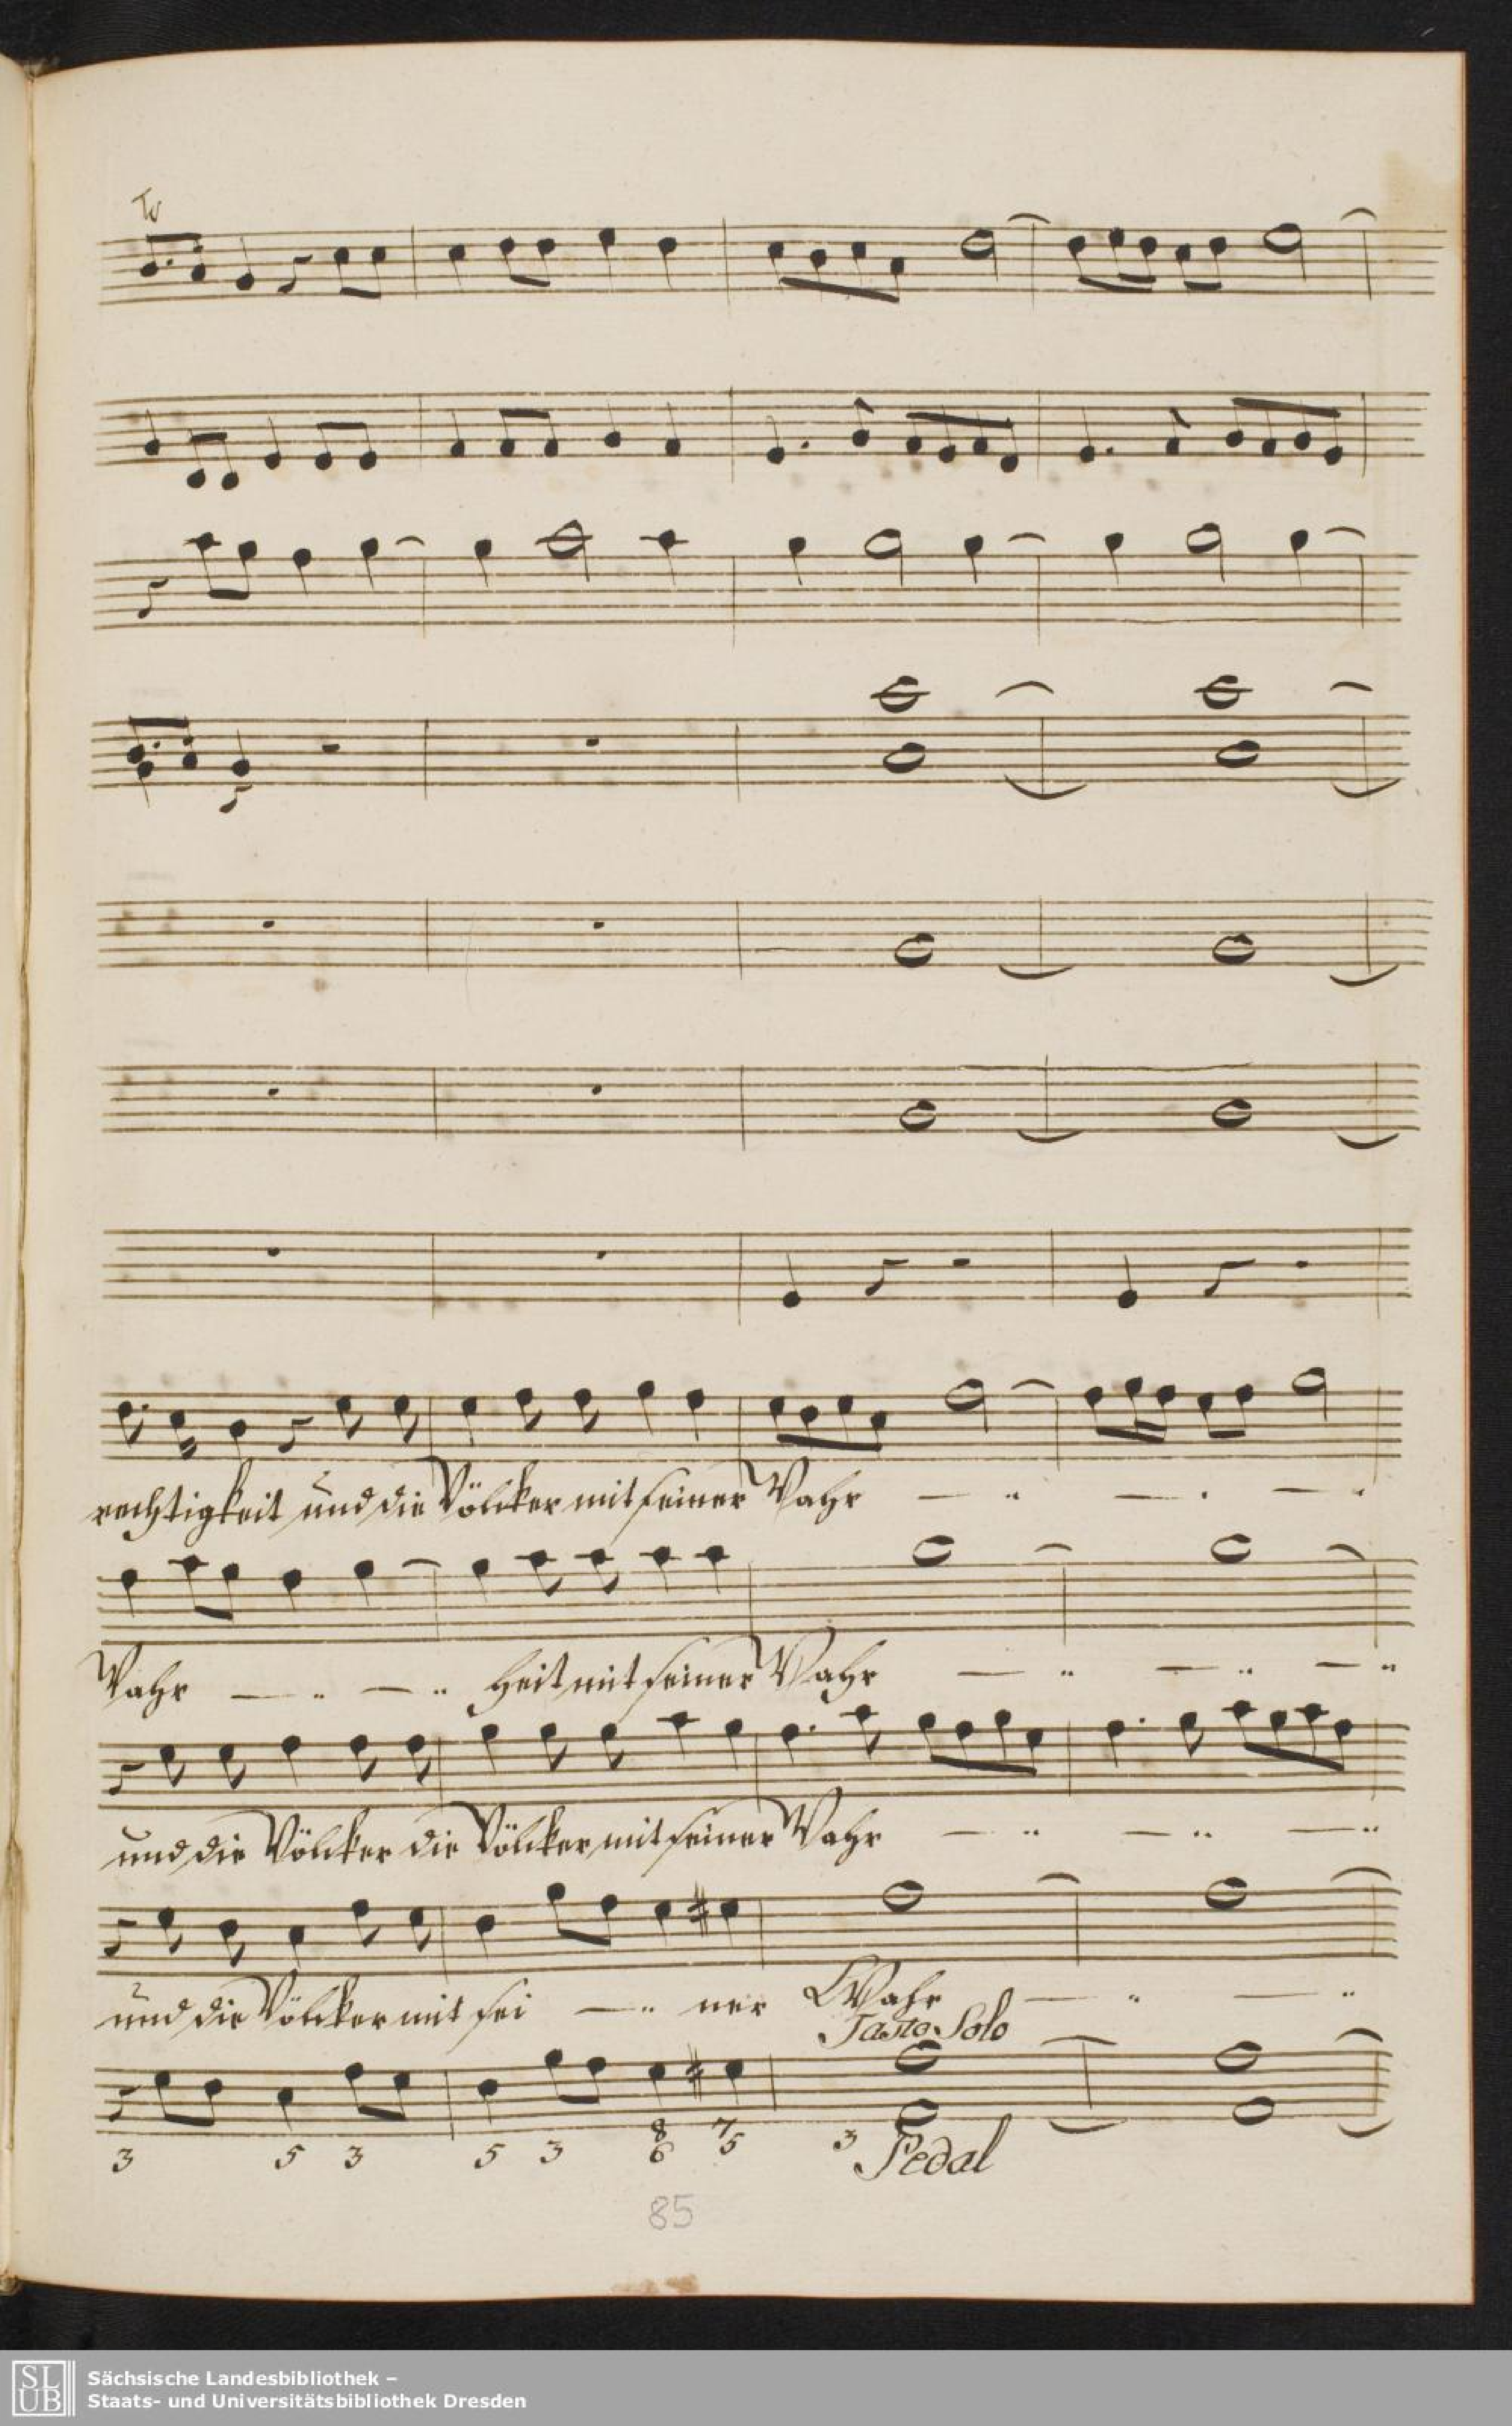 Tr
rechtigkeit und die Völcker mit seiner Wahr
Wahr heit mit seiner Wahr
und die Völcker die Völcker mit seiner Wahr
und die Völcker mit sei ner Wahr
Tasto Solo
3 5 3 5 3 8 6 7 5 3
Pedal
85
SLUB
Sächsische Landesbibliothek –
Staats- und Universitätsbibliothek Dresden